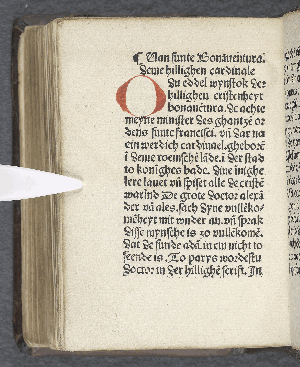 ¶ Van sunte Bonauentura.
deme hillighen cardinale
O Du eddel wynstok der
hillighen cristenheyt
bonauētura. de achte
meyne minster des ghantzē or
dens sunte francisci. vn̄ dar na
ein werdich cardinael. gheborē
i deme roemschē lāde. i der stad
to konighes bade. Dine inighe
lere lauet vn̄ spiset alle de cristē
De grote doctor alexā
der vā ales. sach dyne vullēko⸗
mēheyt mit wnder an. vn̄ sprak
disse mynsche is so vullēkomē.
dat de sunde adā. in em nicht to
seende is. To parys wordestu
doctor in der hillighē scrift. In